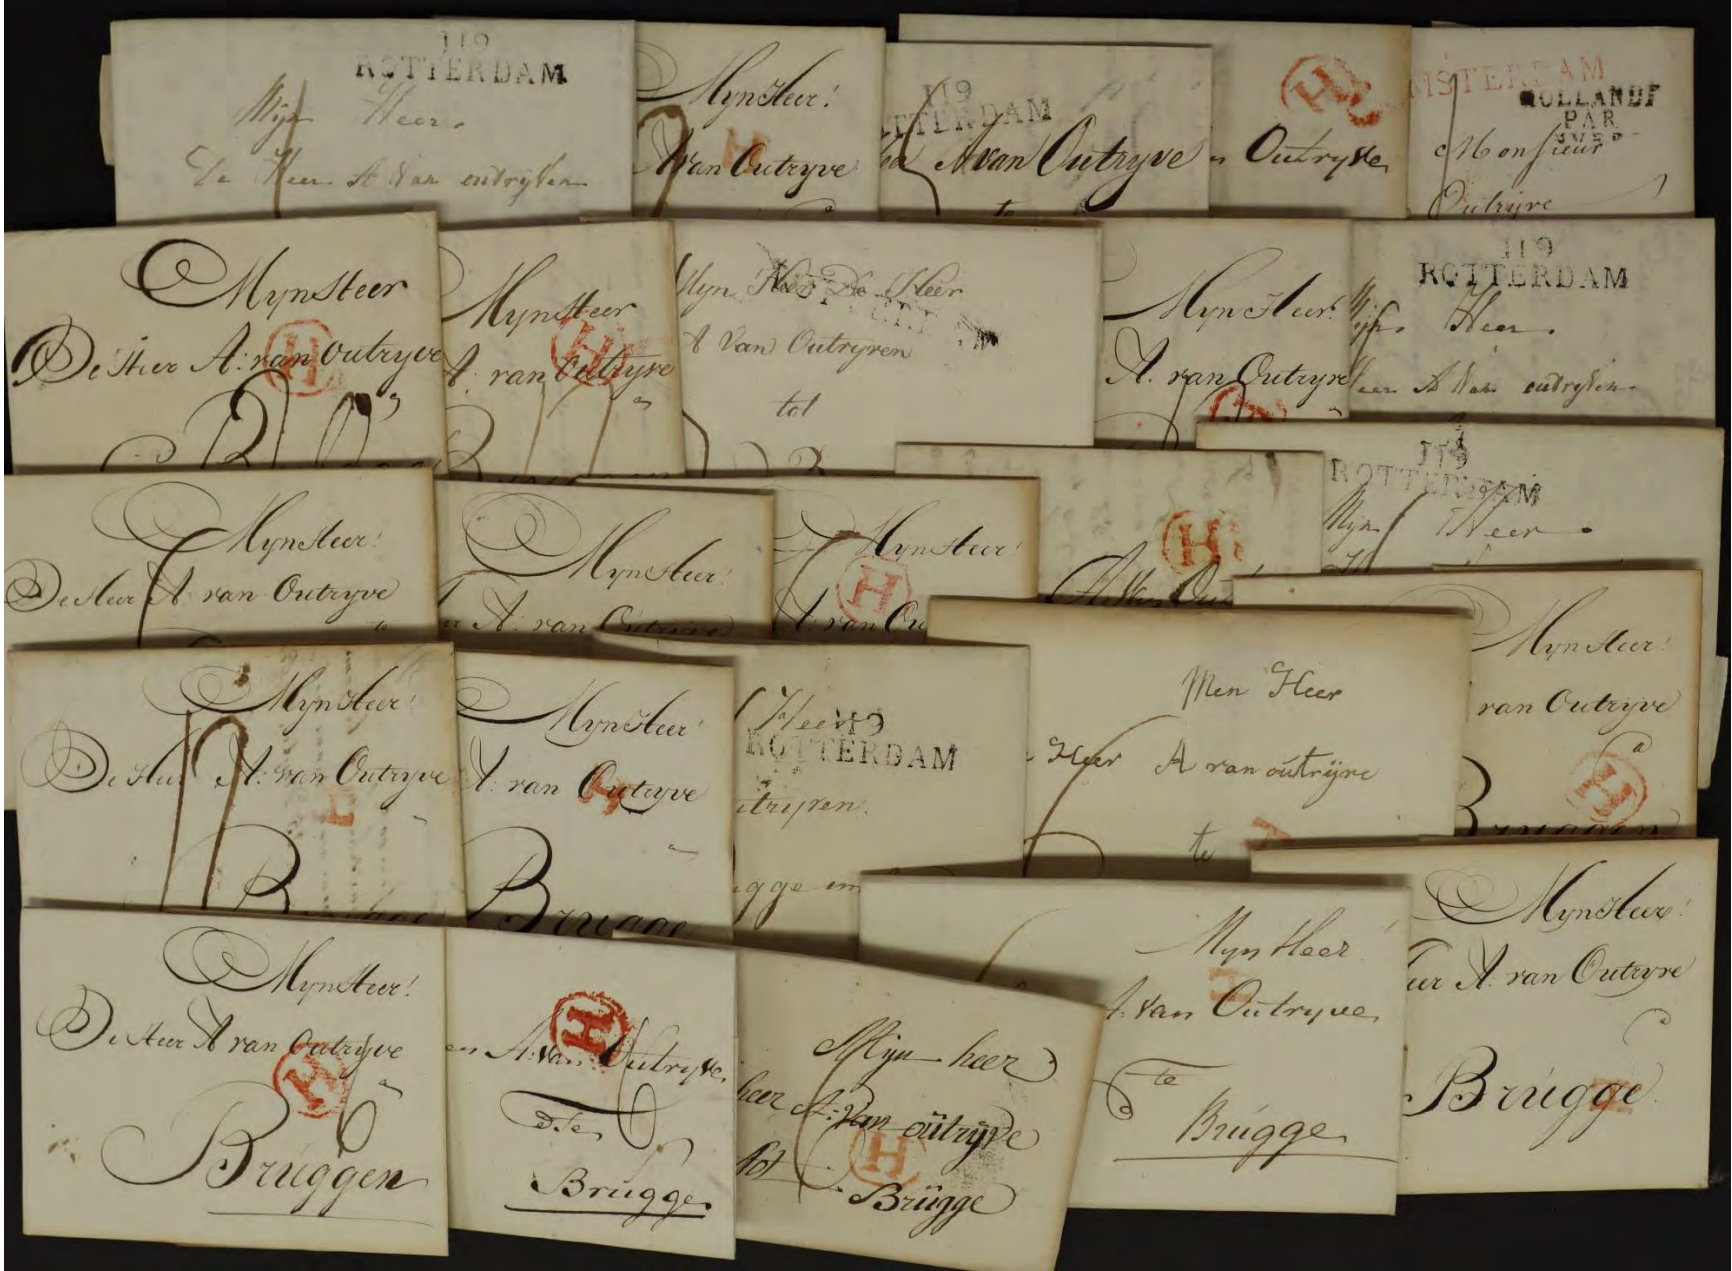 119
ROTTERDAM
Mijn Heer
De Heer A Van outryven
MynHeer!
A van Outryve
H
119
TTERDAM
A van Outryve
te
H
Outryve
AMSTERDAM
HOLLANDE
PAR
Monsieur
Outrijve
MynHeer
De Heer A: van Outryve
H
MynHeer
A. van Outryve
H
Myn Heer De Heer
A Van Outryven
tot
MynHeer!
A. van Outryve
H
119
ROTTERDAM
Mijn Heer
Heer A Van outryven
MynHeer!
De Heer A. van Outryve
MynHeer!
A. van Outryve
MynHeer!
H
A van Ou
H
A. Van Out
119
ROTTERDAM
Mijn Heer
MynHeer!
De Heer A. van Outryve
H
MynHeer!
A. van Outryve
H
Brugge
Heer
119
ROTTERDAM
utryven.
ugge
Men Heer
Heer A van outrijve
te
MynHeer!
van Outryve
H
Bruggen
MynHeer!
De Heer A van Outryve
H
Bruggen
H
A: van Outryve
Brugge
Mijn heer
heer A: Van outrijve
tot
H
Brugge
Myn Heer
H
A. van Outryve
te
Brugge
MynHeer!
A: van Outryve
Brugge
H